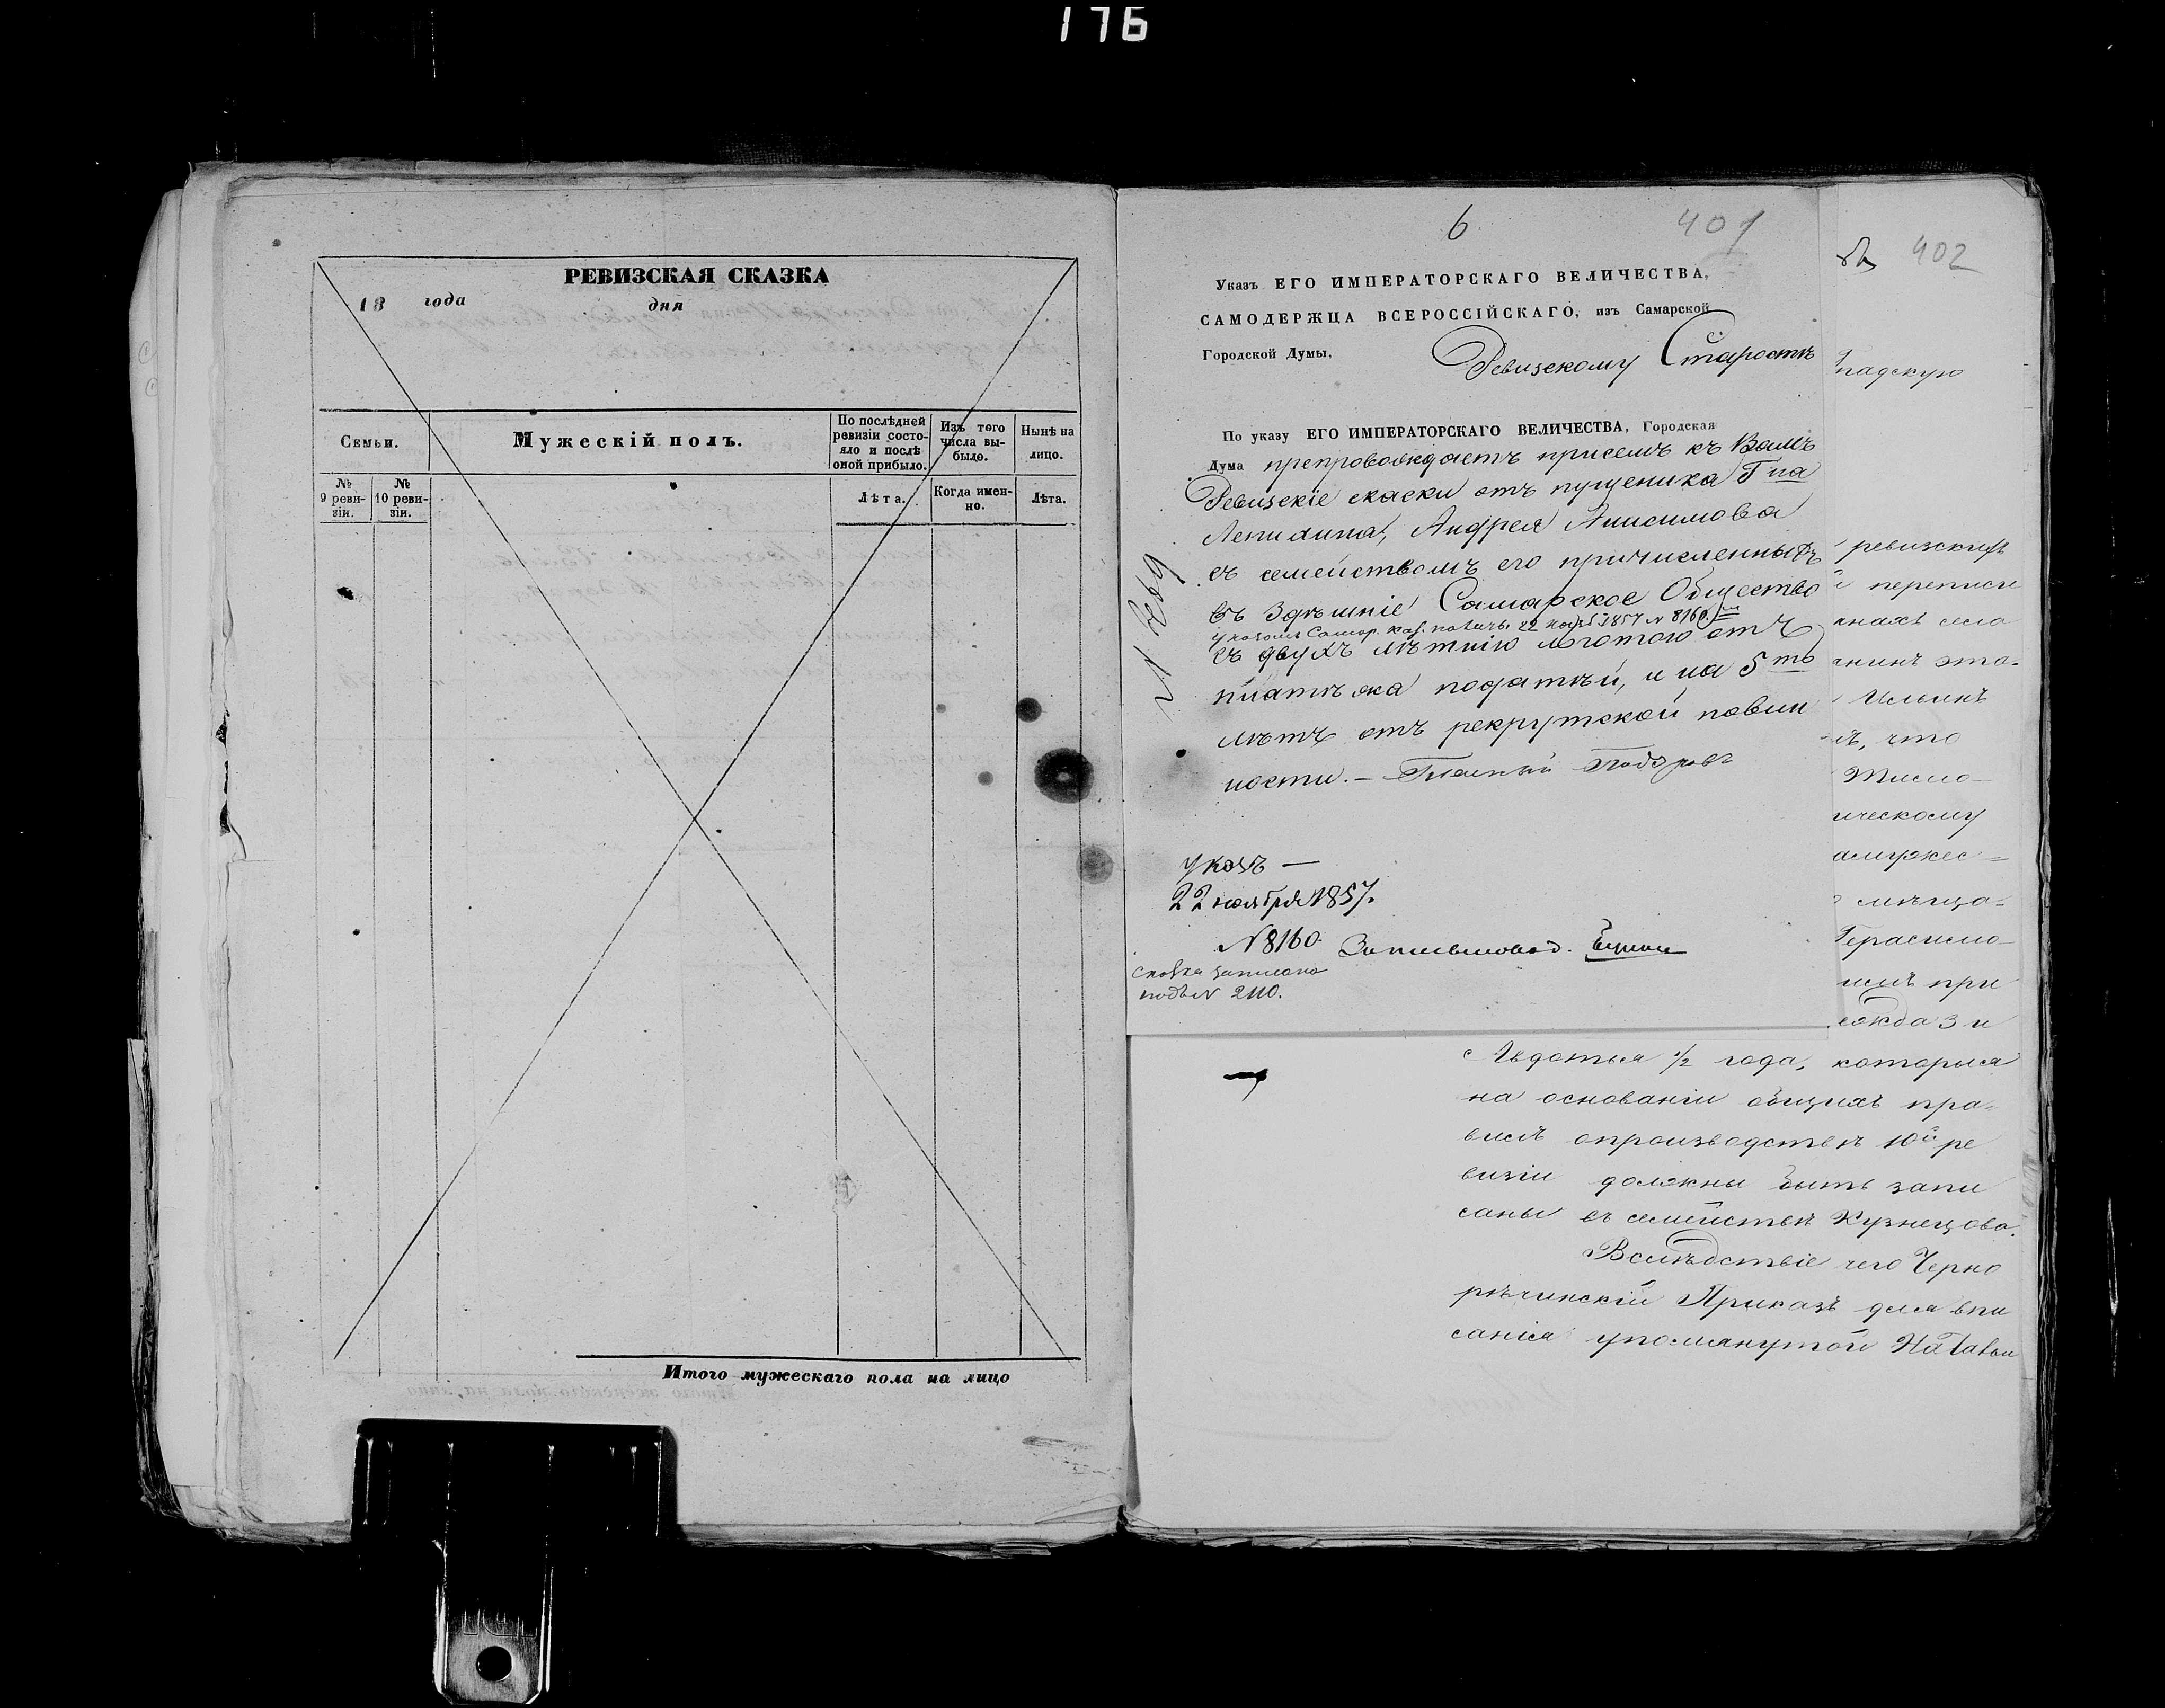 176
РЕВИЗСКАЯ СКАЗКА
18 года дня
Семьи.
Мужескій полъ.
По послѣдней ревизіи состояло и послѣ оной прибыло.
Изъ того числа выбыло.
Нынѣ на лицо.
№ 9 ревизіи.
№ 10 ревизіи.
Лѣта.
Когда именно.
Лѣта.
Итого мужескаго пола на лицо
6
401
Указъ ЕГО ИМПЕРАТОРСКАГО ВЕЛИЧЕСТВА,
САМОДЕРЖЦА ВСЕРОССІЙСКАГО, изъ Самарской
Городской Думы,
Ревизскому Старостѣ
По указу ЕГО ИМПЕРАТОРСКАГО ВЕЛИЧЕСТВА, Городская
Дума препровождаетъ присемъ къ Вамъ
Ревизскіе скаски отъ пущеника Гна
Лепихина, Андрея Анисимова
съ семействомъ его причисленныхъ
въ Здѣшніе Самарское Общество
указомъ Самар. Каз. палаты 22 нояб. 1857 N 8160
съ двухъ лѣтнію льготою отъ
платежа податѣй, и на 5ть
лѣтъ отъ рекрутской повин
ности. — Гласный
указъ —
22 ноября 1857.
N 8160.
скаска записана
подъ N 2110.
402
падскую
ревизскихъ
переписи
кнахъ село
нинъ эта-
Ильинъ
ъ, что
ическому
амужес=
мѣща=
Герасимо-
имъ при
ежда 3 и
Авдотья 1/2 года, которыя
на основаніи общихъ пра-
вилъ опроизводствѣ 10й ре
визіи должны быть запи
саны въ семействѣ Кузнецова.
Вслѣдствіе чего Черно
рѣчинскій Приказъ для впи
санія упомянутой Натальи